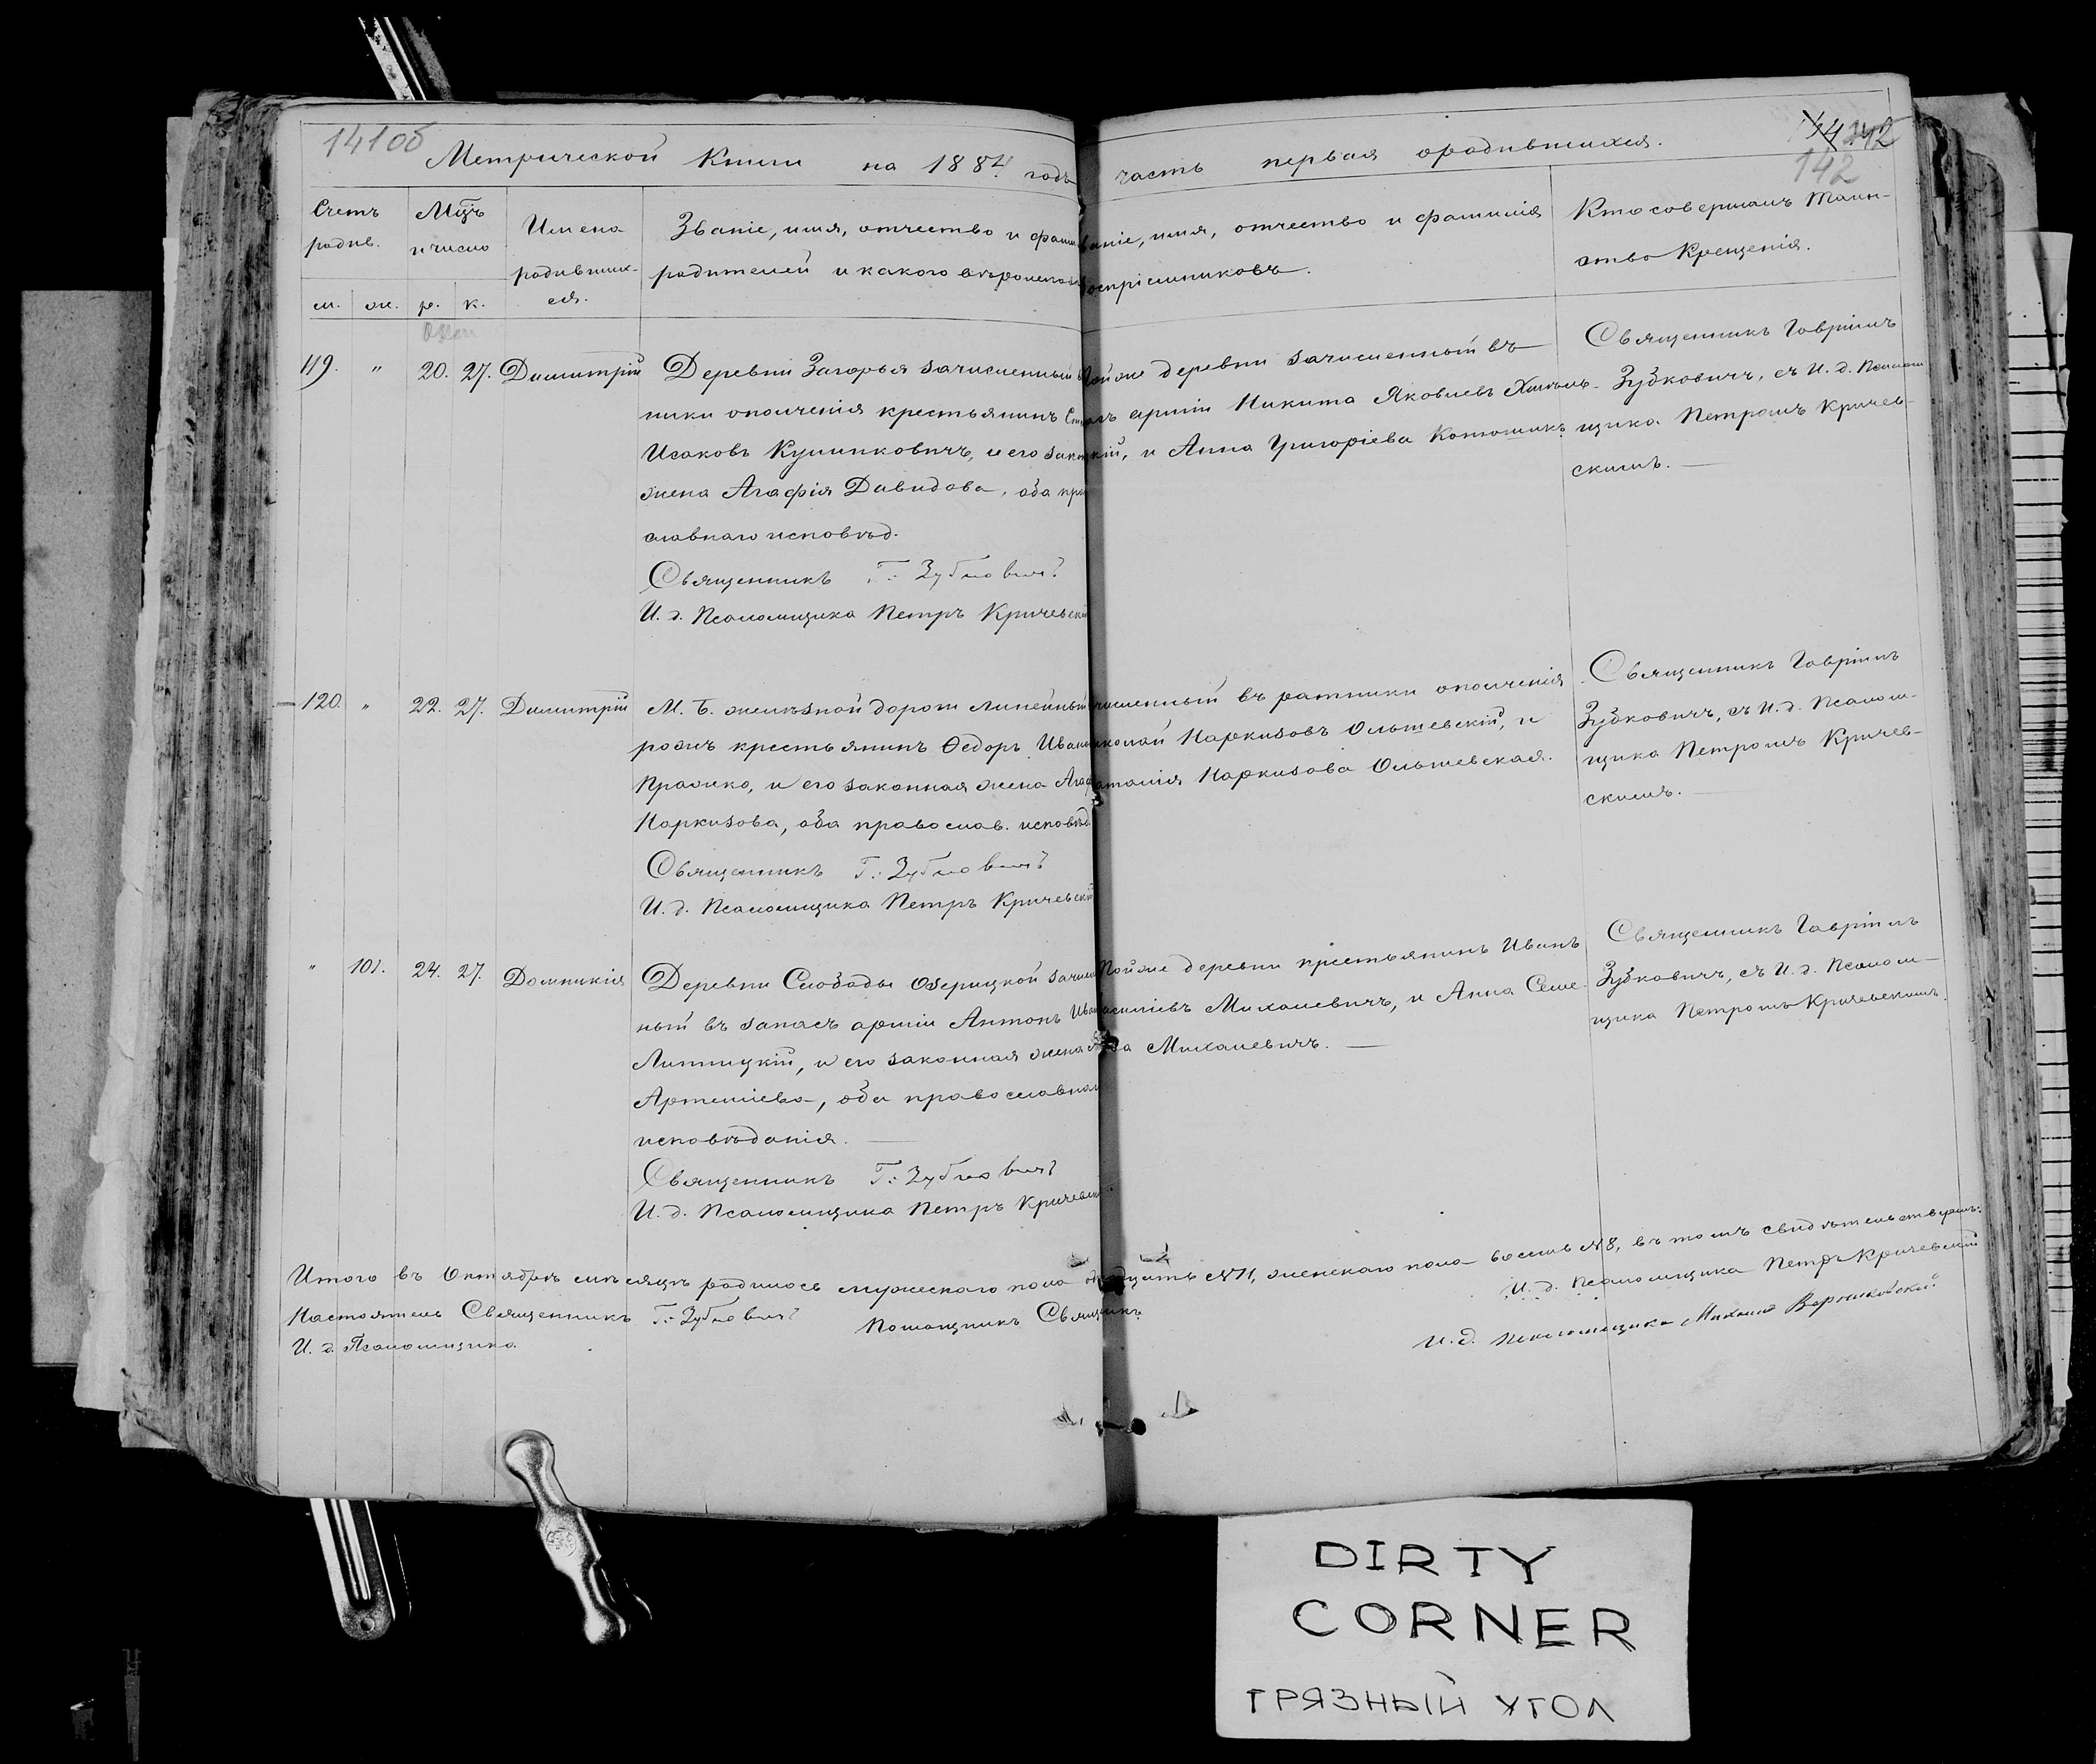 141об
142
142
Метрической Книги на 1884 годъ часть первая о родившихся.
Счетъ родив.
Мцъ и число
Имена родивших-
ся.
Званіе, имя, отчество и фами
родителей и какого вѣроисповѣ
Званіе, имя, отчество и фамилія
воспріемниковъ.
Кто совершалъ Таин-
ство Крещенія.
м. ж. р. к.
Окт
119. " 20. 27. Димитрій
Деревни Загорья зачисленный въ
ники ополченія крестьянинъ
Исаковъ Кулинковичъ, и его закон
жена Агафія Давидова, оба пра
славнаго исповѣд.
Священникъ Г. Зубковичъ
И. д. Псаломщика Петръ Кричевскій
Той же деревни зачисленный въ
арміи Никита Яковлевъ
и Анна Григоріева
Священникъ Гавріилъ
Зубковичъ, съ И. д. Псалом
щика Петромъ Кричев-
скимъ.
120. " 22. 27. Димитрій
М. Б. желѣзной дороги линейный
рожъ крестьянинъ Ѳедоръ Иван
Пражко, и его законная жена Агаф
Наркизова, оба православ. исповѣд.
Священникъ Г. Зубковичъ
И. д. Псаломщика Петръ Кричевскій
численный въ ратники ополченія
Николай Наркизовъ Ольшевскій, и
Наталія Наркизова Ольшевская.
Священникъ Гавріилъ
Зубковичъ, съ И. д. Псалом-
щика Петромъ Кричев-
скимъ.
" 101. 24. 27. Домникія
Деревни Слободы Озерицкой зачислен
ный въ запасъ арміи Антонъ Иван
Липницкій, и его законная жена
Артеміева, оба православнаго
исповѣданія.
Священникъ Г. Зубковичъ
И. д. Псаломщика Петръ Кричевскій
Той же деревни крестьянинъ Иванъ
Василіевъ Михалевичъ, и Анна Семе-
нова Михалевичъ.
Священникъ Гавріилъ
Зубковичъ, съ И. д. Псалом-
щика Петромъ Кричевскимъ.
Итого въ Октябрѣ мѣсяцѣ родилось мужескаго пола одинадцать №11, женскаго пола восемь №8, въ томъ свидѣтельствуемъ:
Настоятель Священникъ Г. Зубковичъ Помощникъ Священникъ И. д. Псаломщика Петръ Кричевскій
И. д. Псаломщика И. д. Псаломщика Михаилъ
DIRTY
CORNER
ГРЯЗНЫЙ УГОЛ